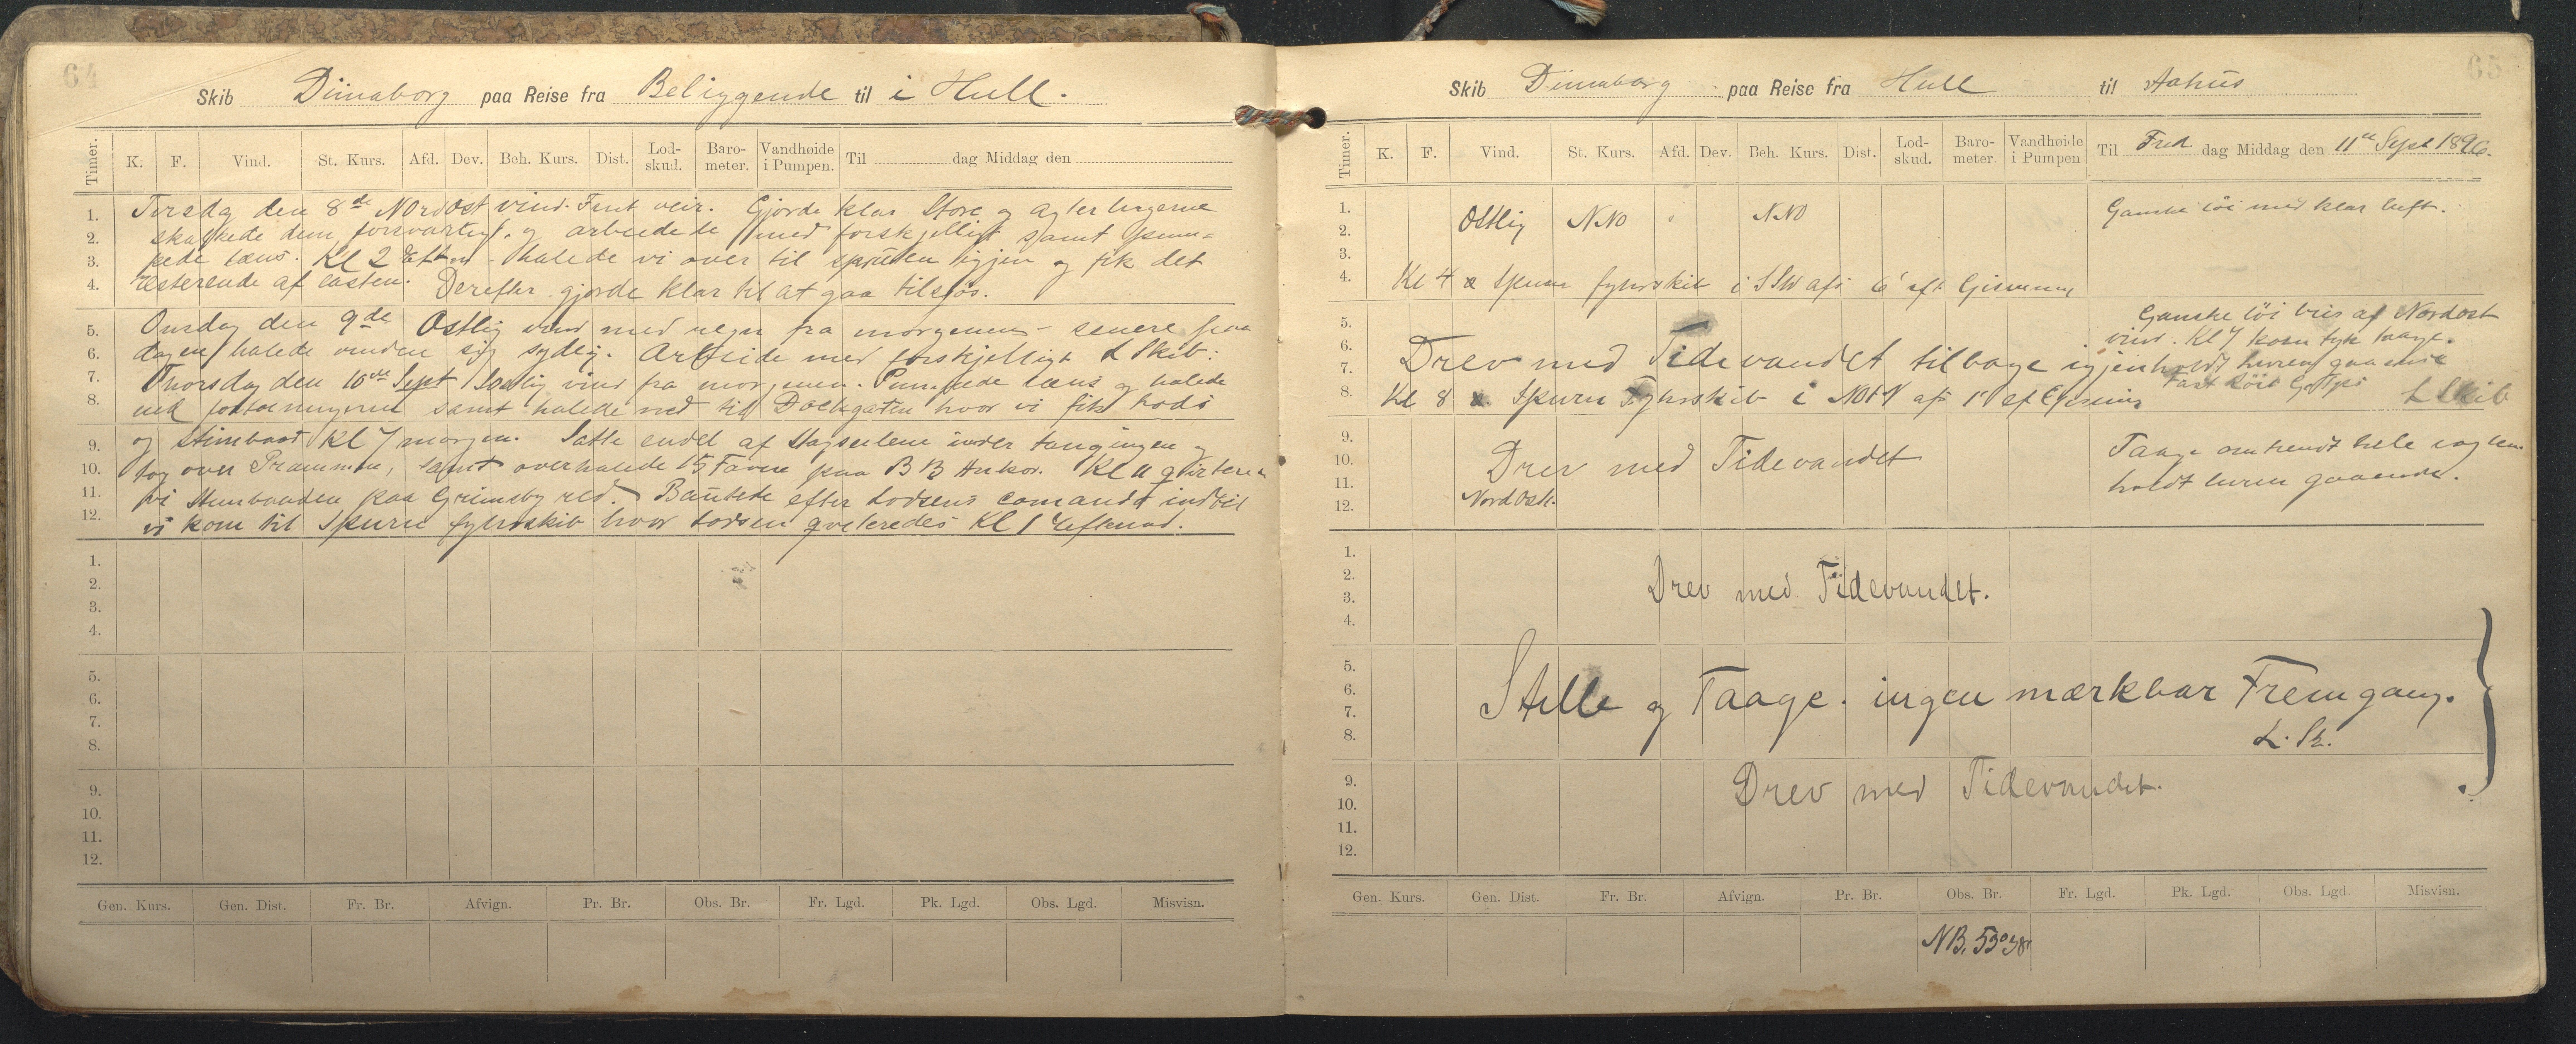 64
Skib Dimaborg paa Reise fra Beliggende til i Hull.
Timer. K. F. Vind. St. Kurs. Afd. Dev. Beh. Kurs. Dist. Lod-skud. Baro-meter. Vandhøide i Pumpen. Til dag Middag den
1. Tirsdag den 8de Nordost vind. Fint veir. Gjorde klar Store og agter lugerne
2. skalkede dem forsvarligt. og arbeidede med forskjelligt samt pum=
3. pede læns. Kl 2 Eftm halede vi over til igjen og fik det
4. resterende af lasten. Derefter gjorde klar til at gaa tilsjøs.
5. Onsdag den 9de Ostlig vind med regn fra morgenen - senere paa
6. dagen halede vinden sig sydlig. Arbeide med forskjelligt L Skib.
7. Thorsdag den 10de Sept vind fra morgenen. Pumpede læns og halede
8. ind fortøiningerne samt halede ned til Dockgaten hvor vi fik Lods
9. og Stimbaad Kl 7 morgen. Satte endel af Stagseilene under taugingen og
10. tog over Prammen, samt overhalede 15 Favne paa BB Anker. Kl 11 qviterede
11. vi Stimbaaden paa Grimsby red. Bautede efter Lodsens comando indtil
12. vi kom til Spurn fyhrskib hvor Lodsen qviteredes Kl 1 Eftmd.
1.
2.
3.
4.
5.
6.
7.
8.
9.
10.
11.
12.
Gen. Kurs. Gen. Dist. Fr. Br. Afvign. Pr. Br. Obs. Br. Fr. Lgd. Pk. Lgd. Obs. Lgd. Misvisn.
65
Skib Dimaborg paa Reise fra Hull til Aahus
Timer. K. F. Vind. St. Kurs. Afd. Dev. Beh. Kurs. Dist. Lod-skud. Baro-meter. Vandhøide i Pumpen Til Fred dag Middag den 11te Sept 1896.
1. Ganske løi med klar luft.
2. Ostlig NNO NNO
3.
4. Kl 4 Spurn fyhrskib i SSW afs 6' eft Gisning
5. Ganske løi bris af Nordost
6. vind. Kl 7 kom tyk taage.
7. Drev med Tidevandet tilbage igjen holdt luren gaaende
8. Kl 8 Spurn Fyhrskib i afs 1' ef Gisning L Skib
9. Taage omtrendt hele vagten
10. Drev med Tidevandet
11. holdt luren gaaende.
12. Nord Ostl.
1.
2. Drev med Tidevandet.
3.
4.
5.
6. Stille og Taage. ingen mærkbar Fremgang.
7.
8. L. Sk.
9. Drev med Tidevandet.
10.
11.
12.
Gen. Kurs. Gen. Dist. Fr. Br. Afvign. Pr. Br. Obs. Br. Fr. Lgd. Pk. Lgd. Obs. Lgd. Misvisn.
NB. 53°38'